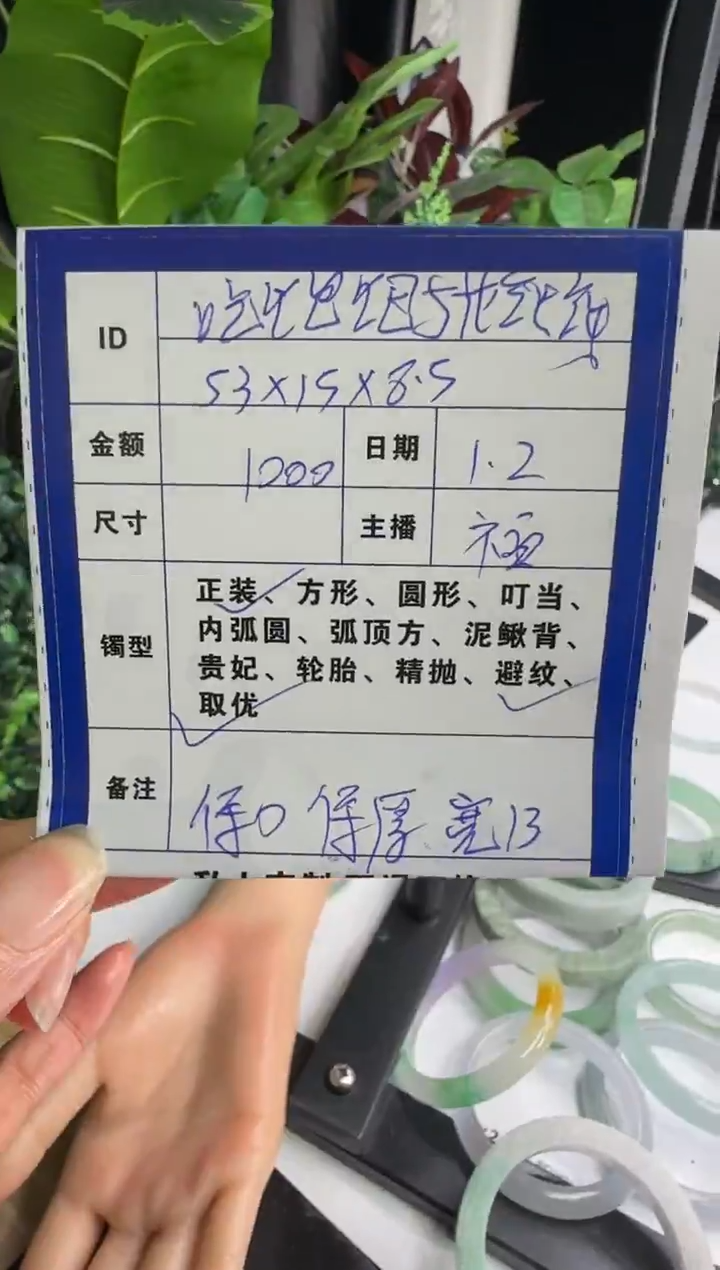 ID
53×15×8.5
金额 1000 日期 1.2
尺寸 主播
镯型 正装、方形、圆形、叮当、
内弧圆、弧顶方、泥鳅背、
贵妃、轮胎、精抛、避纹、
取优
备注 保口 保厚 宽13